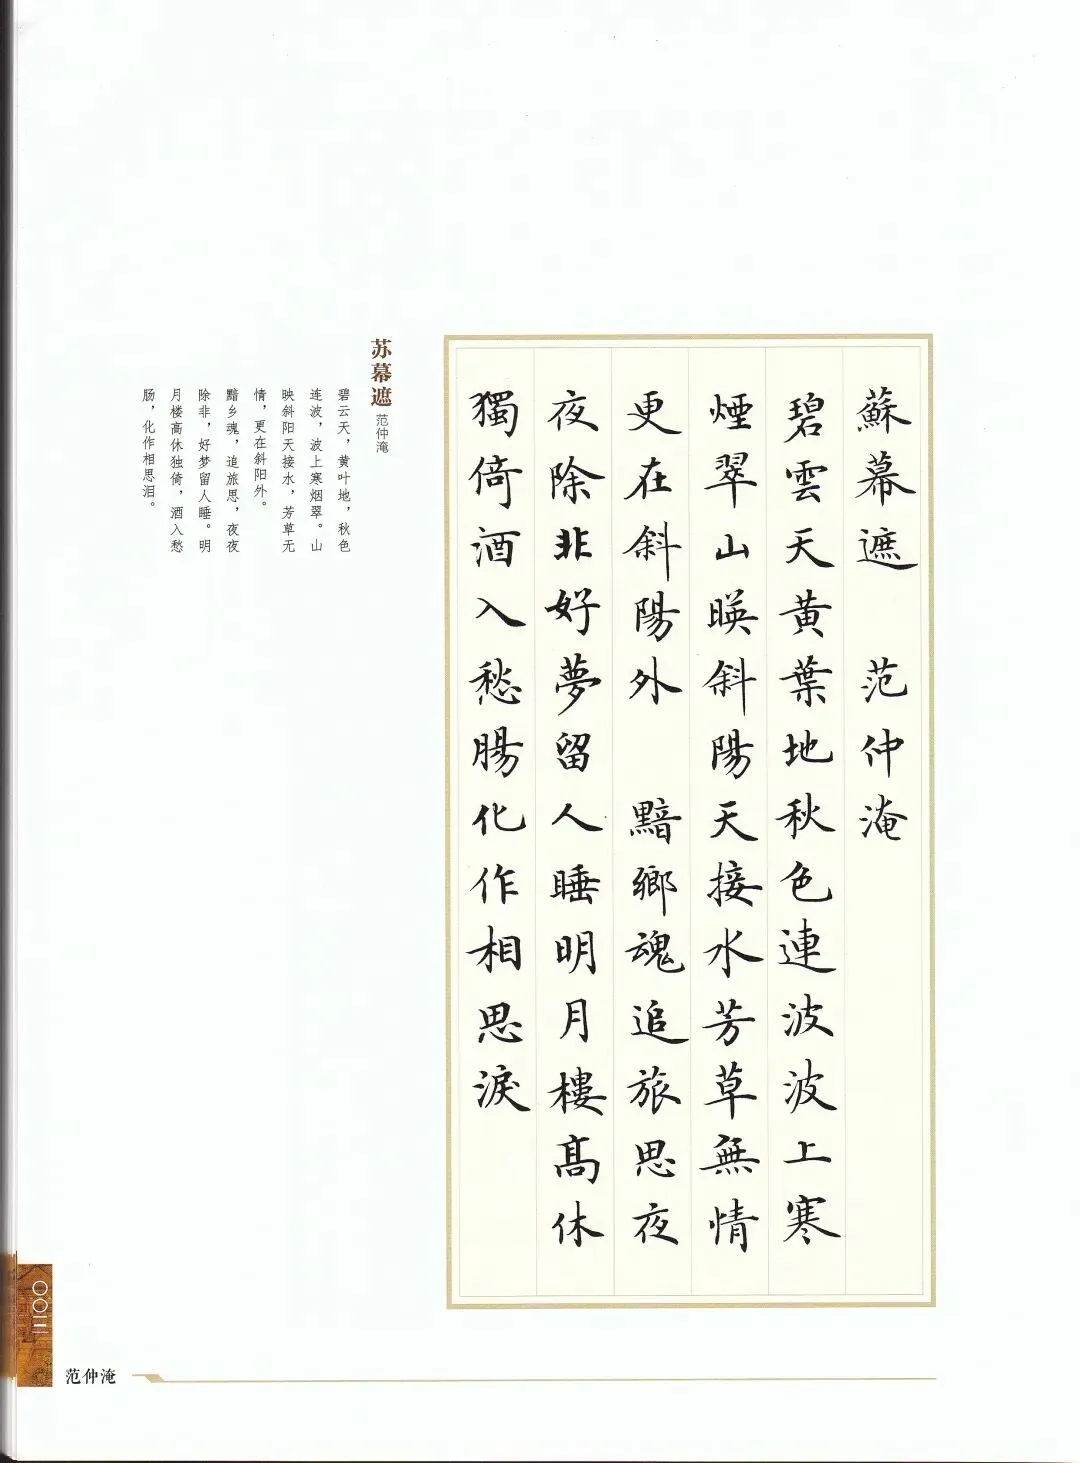 蘇幕遮　范仲淹
碧雲天黃葉地秋色連波波上寒
煙翠山暎斜陽天接水芳草無情
更在斜陽外　黯鄉魂追旅思夜
夜除非好夢留人睡明月樓高休
獨倚酒入愁腸化作相思淚
苏幕遮 范仲淹
碧云天，黄叶地，秋色
连波，波上寒烟翠。山
映斜阳天接水，芳草无
情，更在斜阳外。
黯乡魂，追旅思，夜夜
除非，好梦留人睡。明
月楼高休独倚，酒入愁
肠，化作相思泪。
范仲淹